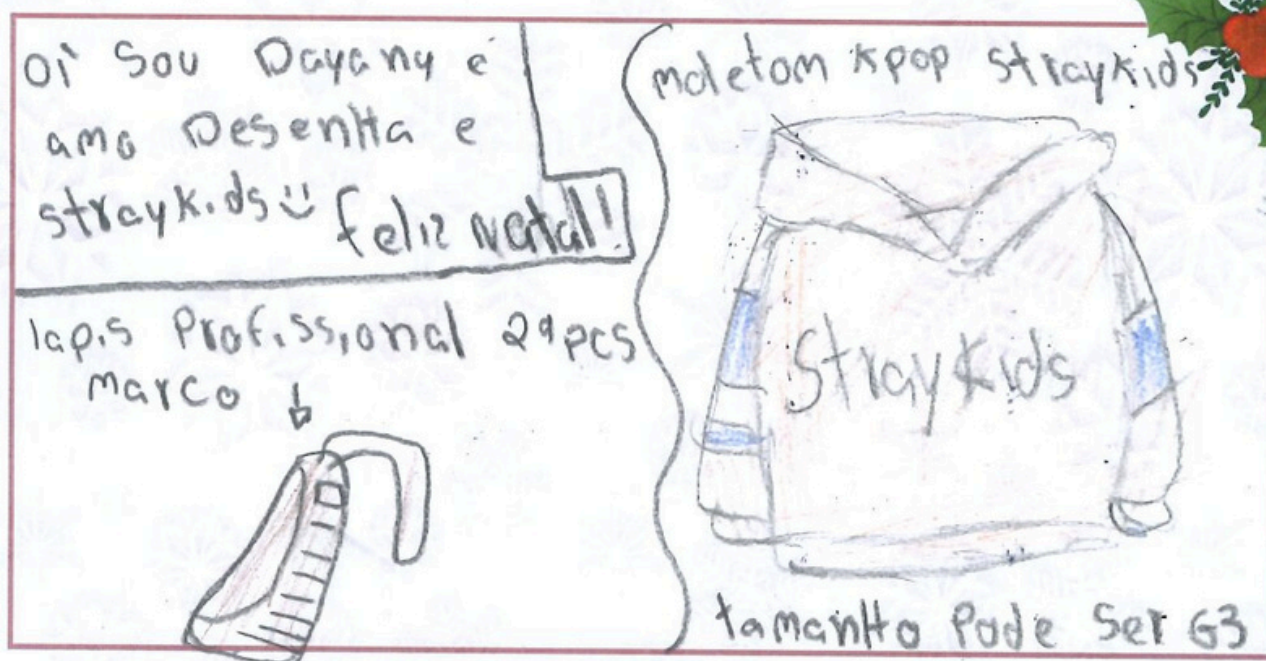 oi Sou Dayany e
amo Desenha e
straykids
feliz Natal!
lapis Profissional 29pcs
marco
moletom kpop straykids
Straykids
tamanho Pode Ser G3